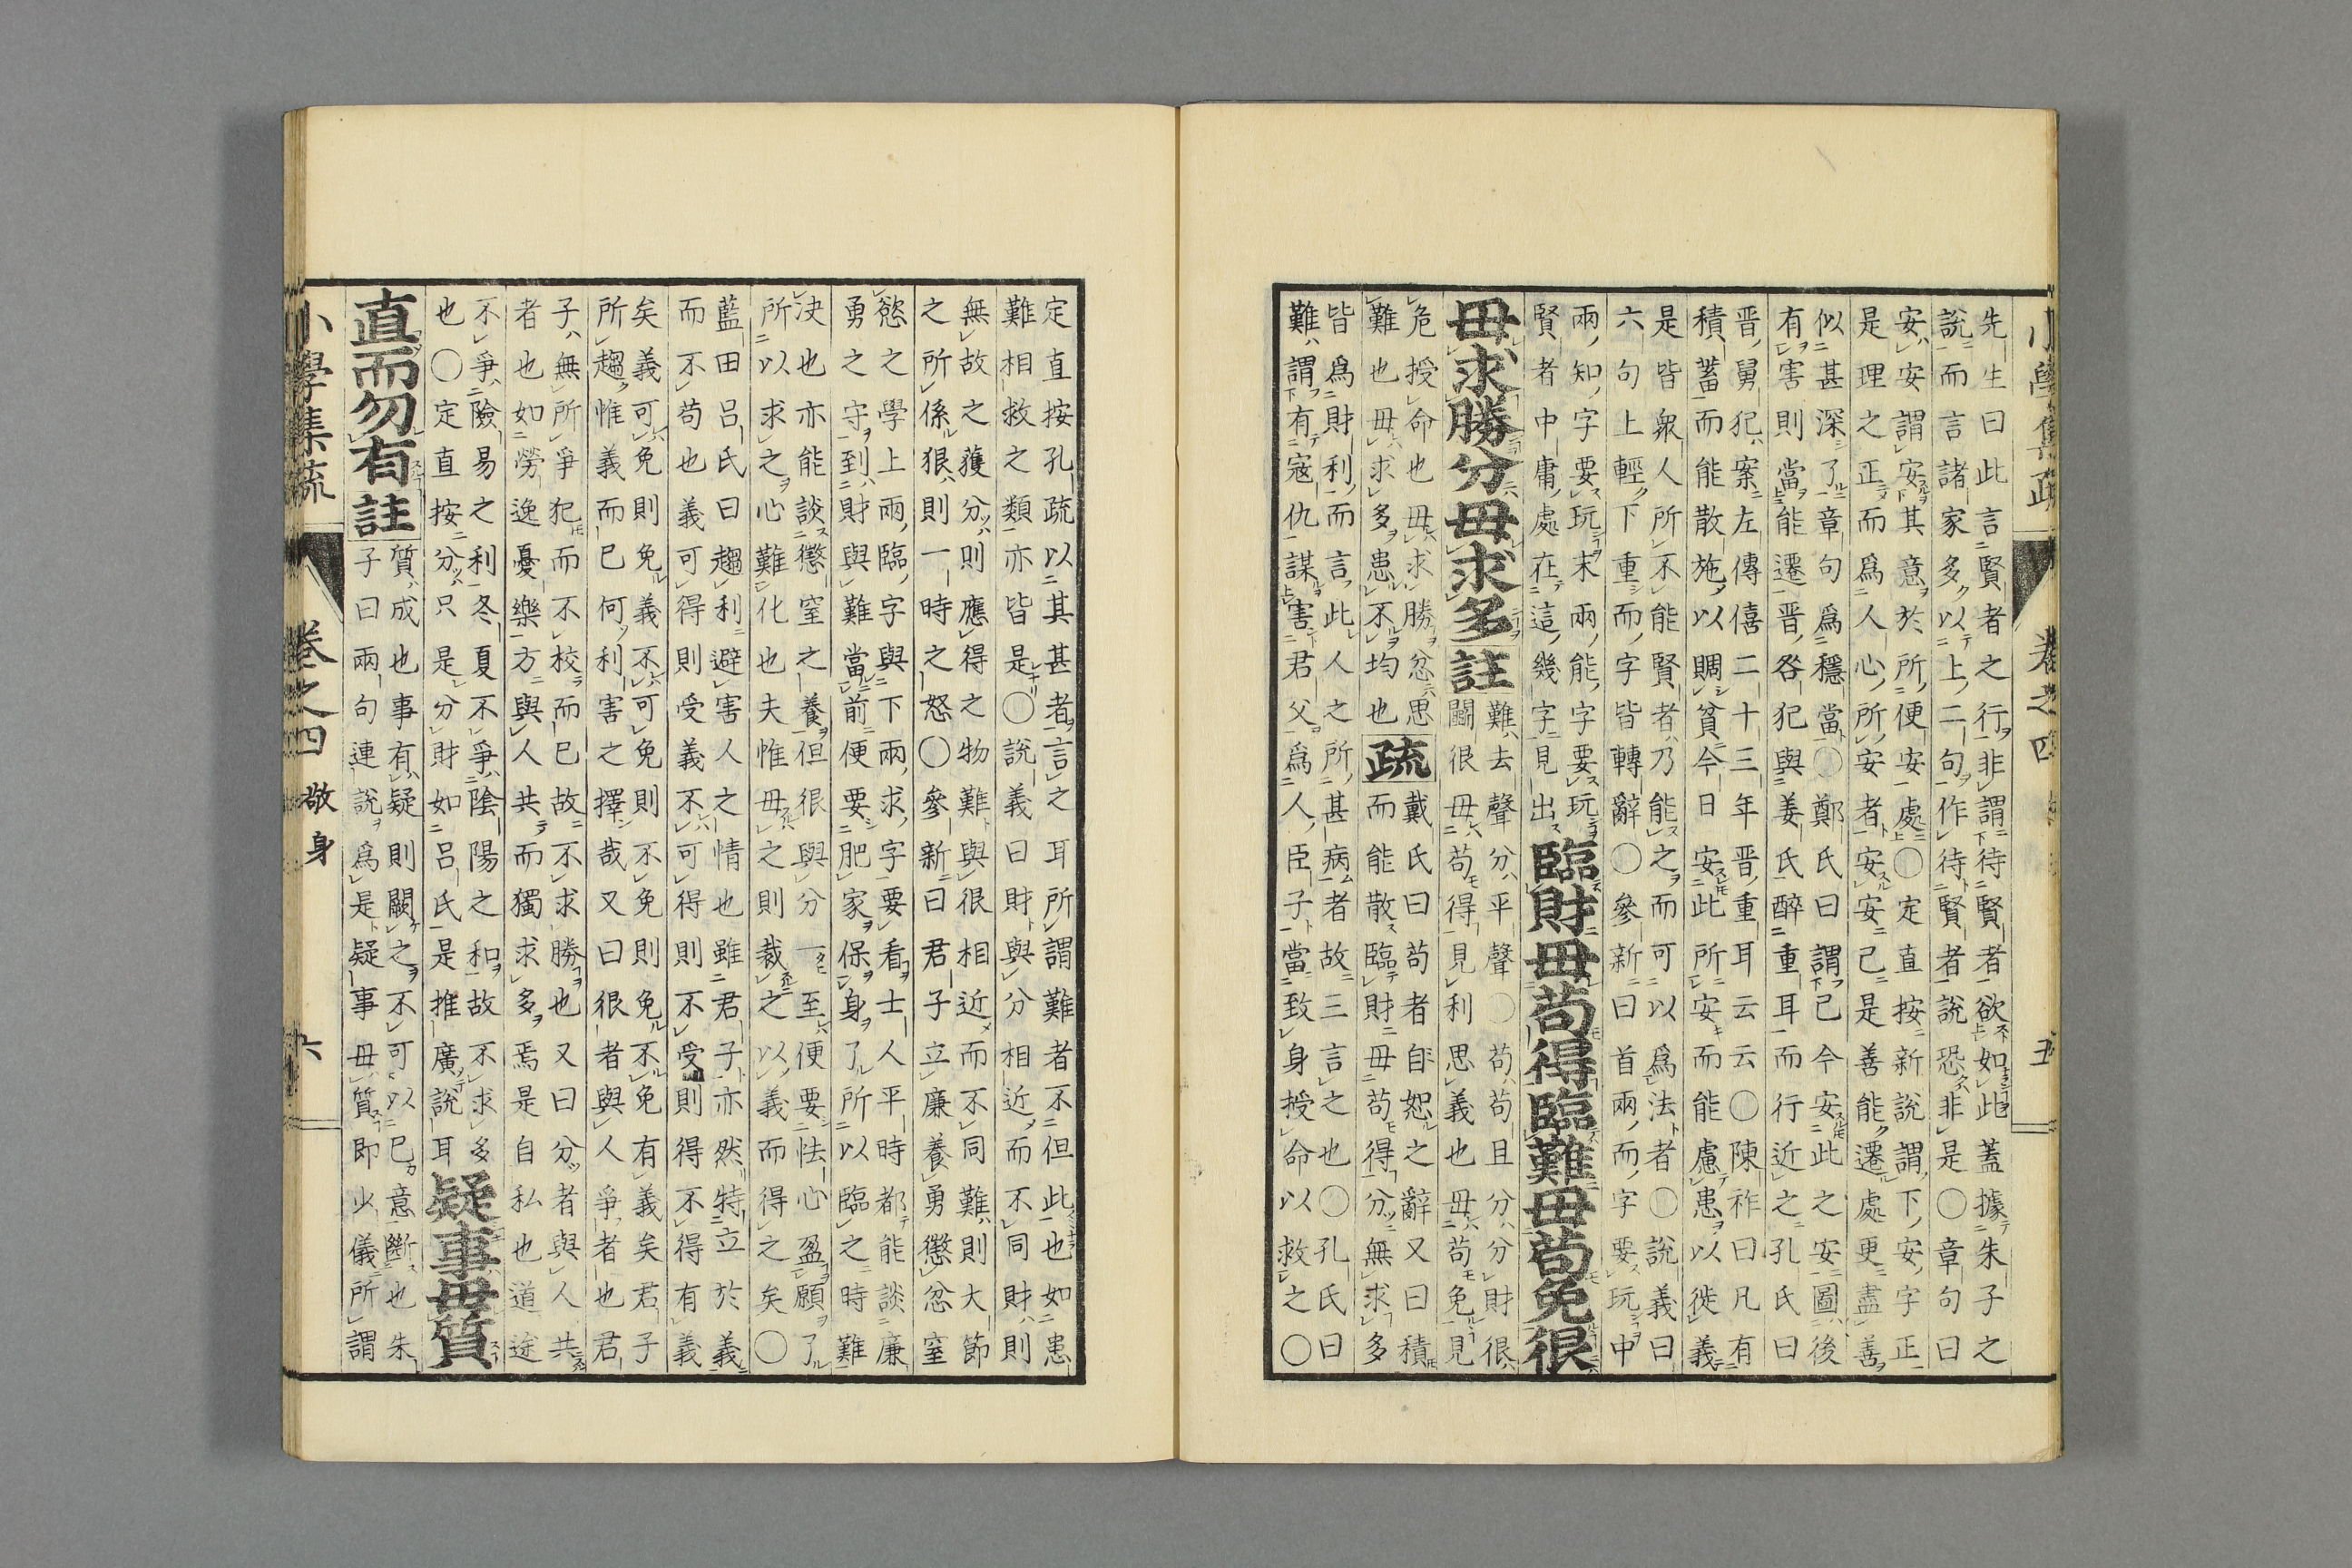 先生曰此言賢者之行非謂待賢者欲如此蓋據朱子之
說而言諸家多以上二句作待賢者說恐非是〇章句曰
安安謂安其意於所便安處〇定直按新說謂下安字正
是理之正而爲人心所安者安安己是善能遷處更盡善
似甚深了章句爲穩當〇鄭氏曰謂己今安此之安圖後
有害則當能遷晋咎犯與姜氏醉重耳而行近之孔氏曰
晋舅犯案左傳僖二十三年晋重耳云云〇陳祚曰凡有
積蓄而能散施以賙貧今日安此所安而能慮患以徙義
是皆衆人所不能賢者乃能之而可以爲法者〇說義曰
六句上輕下重而字皆轉辭〇參新曰首兩而字要玩中
兩知字要玩末兩能字要玩
賢者中庸處在這幾字見出
臨財毋苟得臨難毋苟免很
毋求勝分毋求多
註
難去聲分平聲〇苟苟且分分財很
鬭很毋苟得見利思義也毋苟免見
危授命也毋求勝忿思
難也毋求多患不均也
疏
戴氏曰苟者自恕之辭又曰積
而能散臨財毋苟得分無求多
皆爲財利而言此人之所甚病者故三言之也〇孔氏曰
難謂有寇仇謀害君父爲人臣子當致身授命以救之〇
小學集疏
卷之四
五
定直按孔疏以其甚者言之耳所謂難者不但此也如患
難相救之類亦皆是〇說義曰財與分相近而不同財則
無故之獲分則應得之物難與很相近而不同難則大節
之所係很則一時之怒〇參新曰君子立廉養勇懲忿窒
慾之學上兩臨字與下兩求字要看士人平時都能談廉
勇之守到財與難當前便要肥家保身了所以臨之時難
决也亦能談懲窒之養但很與分一至便要怯心盈願了
所以求之心難化也夫惟毋之則裁之以義而得之矣〇
藍田呂氏曰趨利避害人之情也雖君子亦然特立於義
而不苟也義可得則受義不可得則不受則得不得有義
矣義可免則免義不可免則不免則免不免有義矣君子
所趨惟義而已何利害之擇哉又曰很者與人爭者也君
子無所爭犯而不校而已故不求勝也又曰分者與人共
者也如勞逸憂樂方與人共而獨求多焉是自私也道途
不爭險易之利冬夏不爭陰陽之和故不求多
也〇定直按分只是分財如呂氏是推廣說耳
疑事毋質
直而勿有
註
質成也事有疑則闕之不可以己意斷也朱
子曰兩句連說爲是疑事毋質即少儀所謂
小學集疏
卷之四
敬身
六